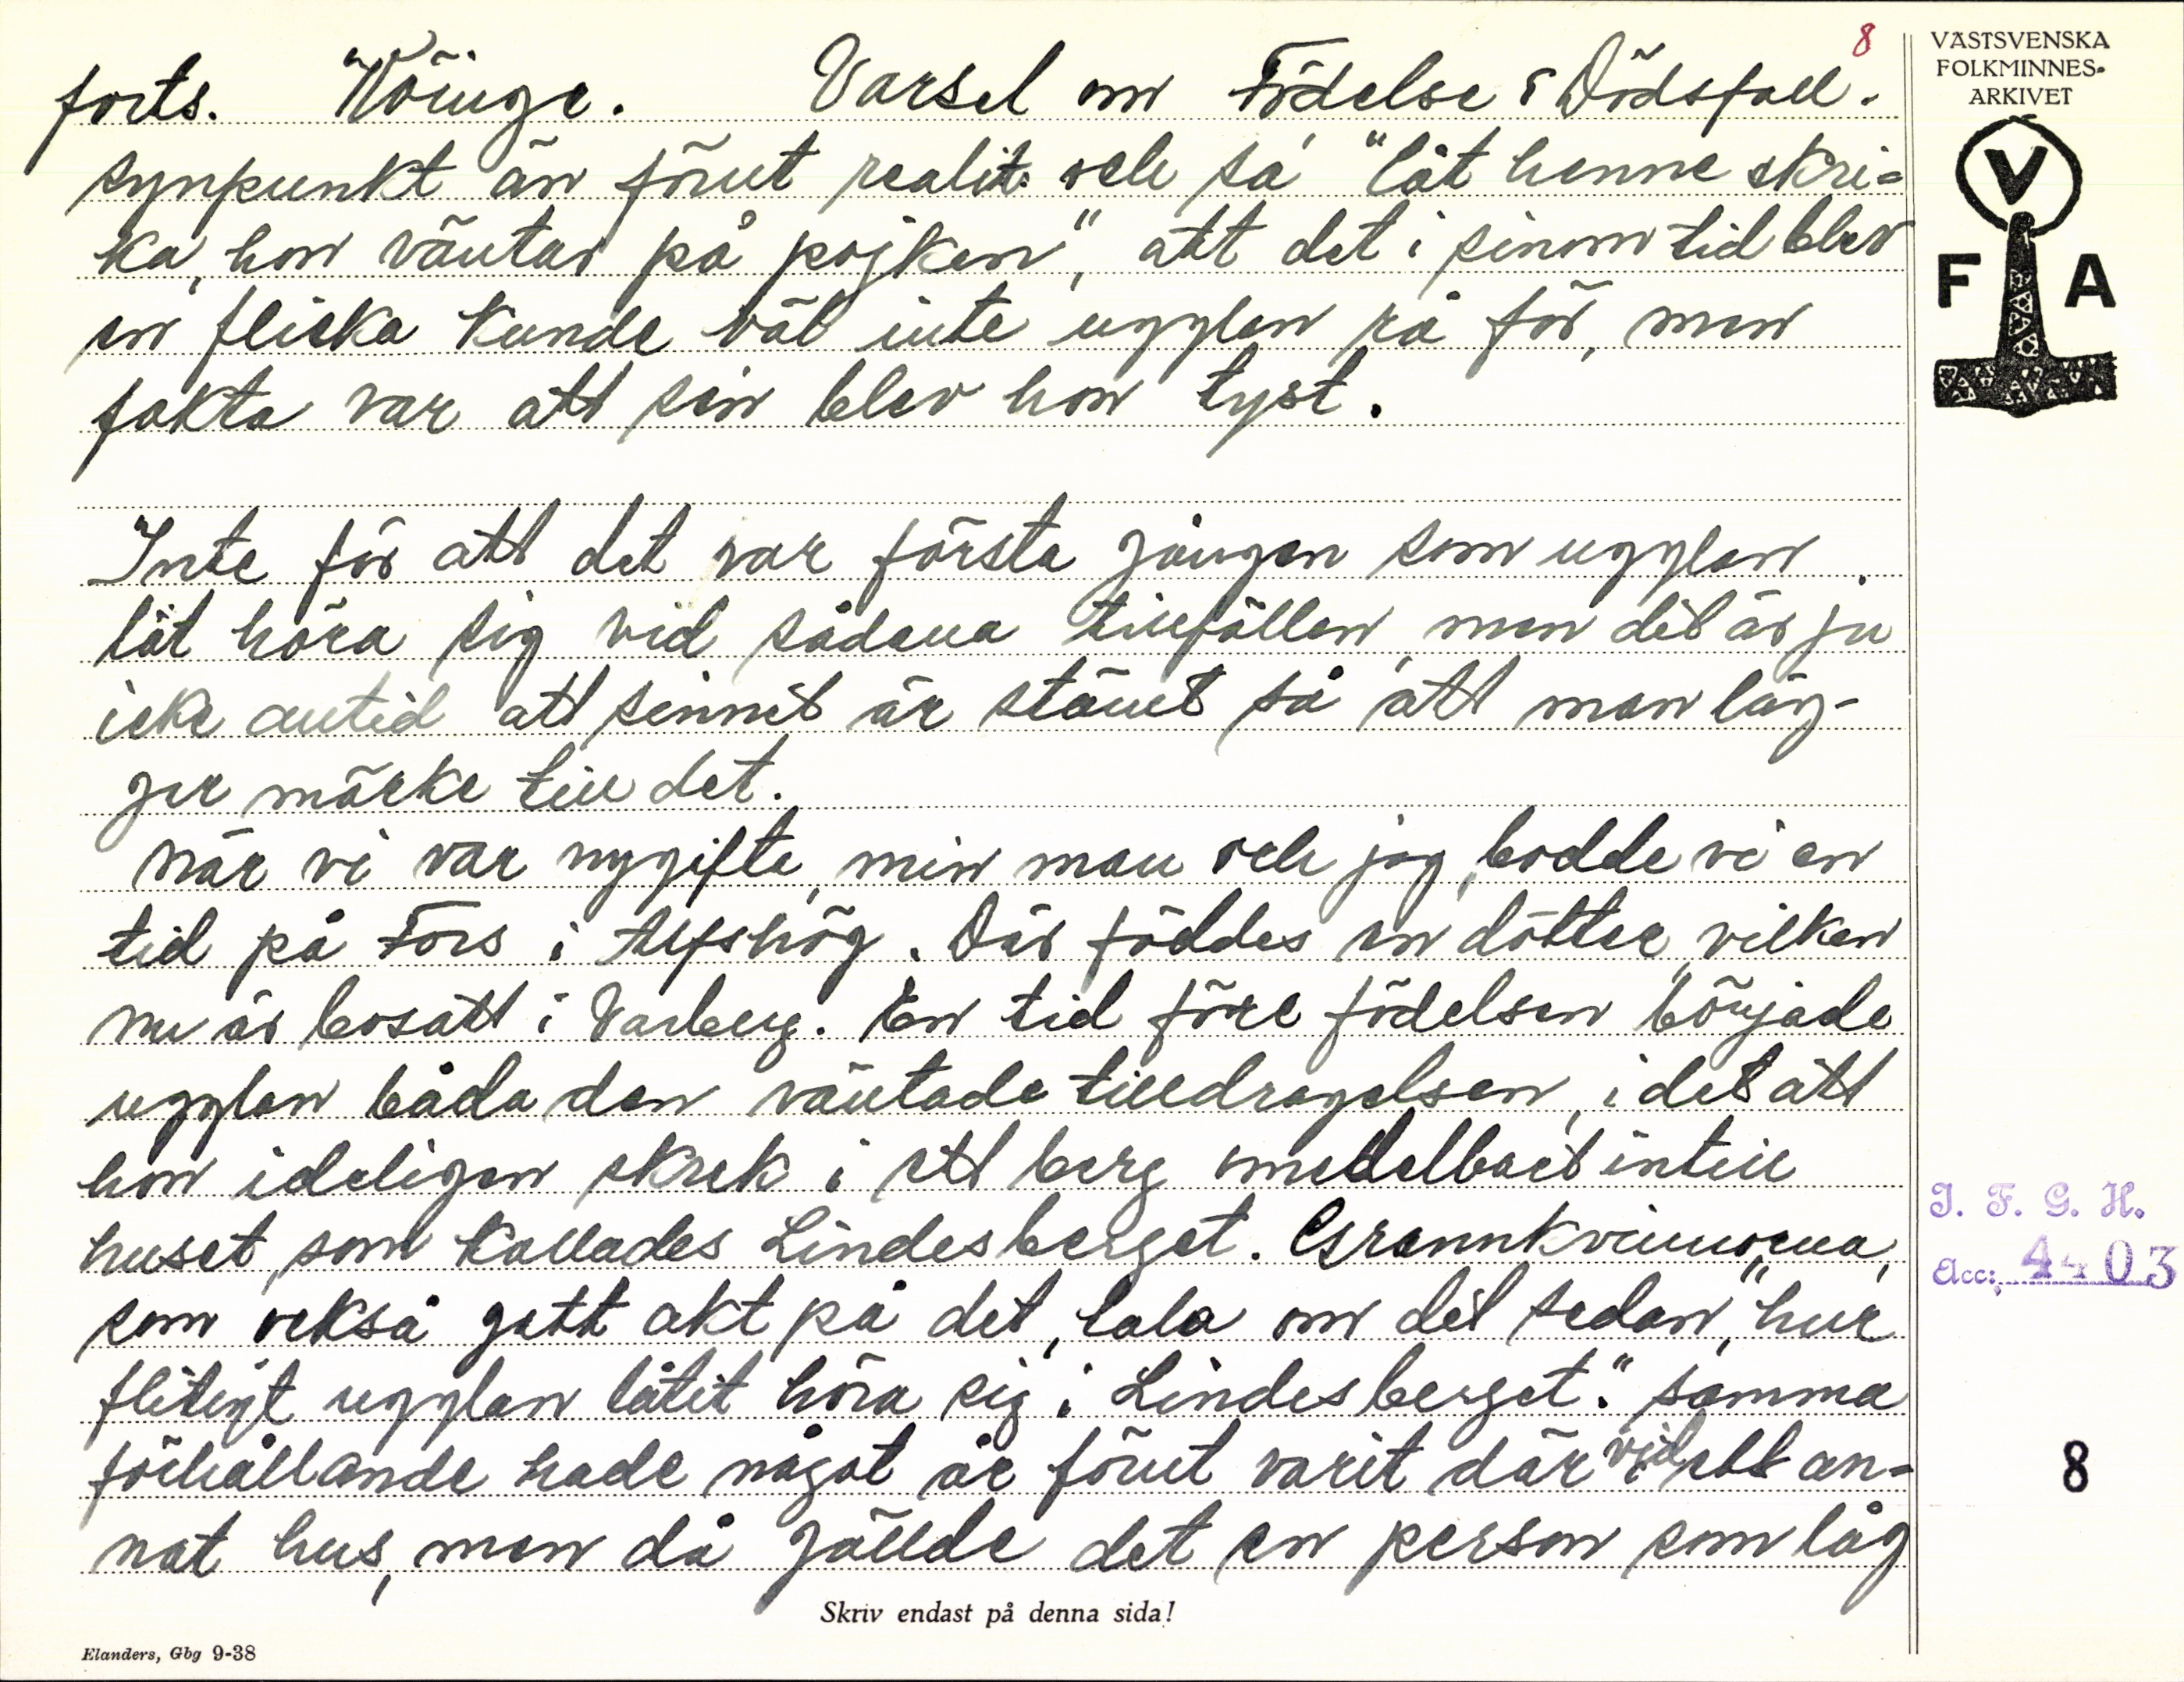 8
forts. Köinge. Varsel om Födelse & Dödsfall.
synpunkt än förut realit. och sa' "låt henne skri=
ka, hon väntar på pojken", att det i sinom tid blev
en fliska kunde väl inte ugglan rå för, men
fakta var att sen blev hon tyst.
Inte för att det var första gången som ugglan
låt höra sig vid sådana tillfällen, men det är ju
icke alltid att sinnet är stämt så att man läg-
ger märke till det.
När vi var nygifta, min man och jag, bodde vi en
tid på Fors i Alfshög. Där föddes en dotter, vilken
nu är bosatt i Varberg. En tid före födelsen började
ugglan båda den väntade tilldragelsen, i det att
hon ideligen skrek i ett berg omedelbart intill
huset, som kallades Lindesberget. Grannkvinnorna,
som också gett akt på det, tala om det sedan, "hur
flitigt ugglan låtit höra sig i Lindesberget." Samma
förhållande hade något år förut varit där vid ett an=
nat hus, men då gällde det en person som låg
Skriv endast på denna sida!
Elanders, Gbg 9-38
VÄSTSVENSKA
FOLKMINNES-
ARKIVET
V
F A
I. F. G. H.
Acc: 4403
8